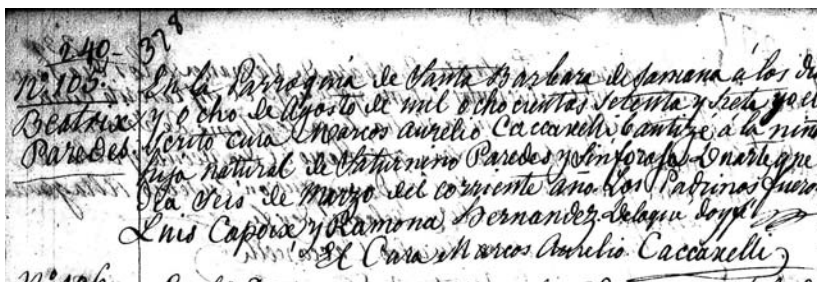 240- 378
Nº 105. En la Parroquia de Santa Barbara de Samana á los die
Beatrix y ocho de Agosto de mil ochocientos setenta y siete yo el
Paredes. scrito cura Marcos Aurelio Caccavelli bautizé á la niña
hija natural de Saturnino Paredes y Sinforosa Duarte que
dia seis de Marzo del corriente año. Los Padrinos fueron
Luis Capoix y Ramona Hernandez. De la que doy fé
El Cura Marcos Aurelio Caccavelli
Nº 106